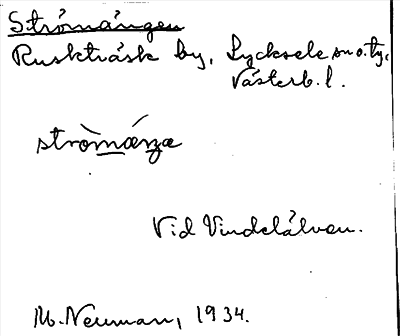 Strömängen
Ruskträsk by, Lycksele sn o. ty,
Västerb. l.
strö̀mæ̀ŋa
Vid Vindelälven.
M. Neuman, 1934.